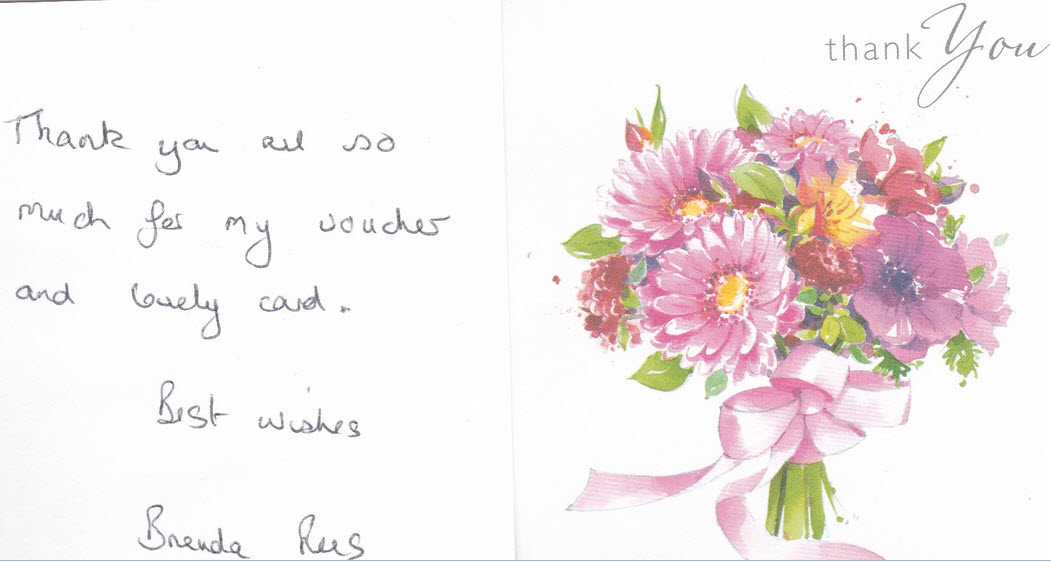 Thank you all so
much for my voucher
and lovely card.
Best wishes
Brenda Rees
thank You